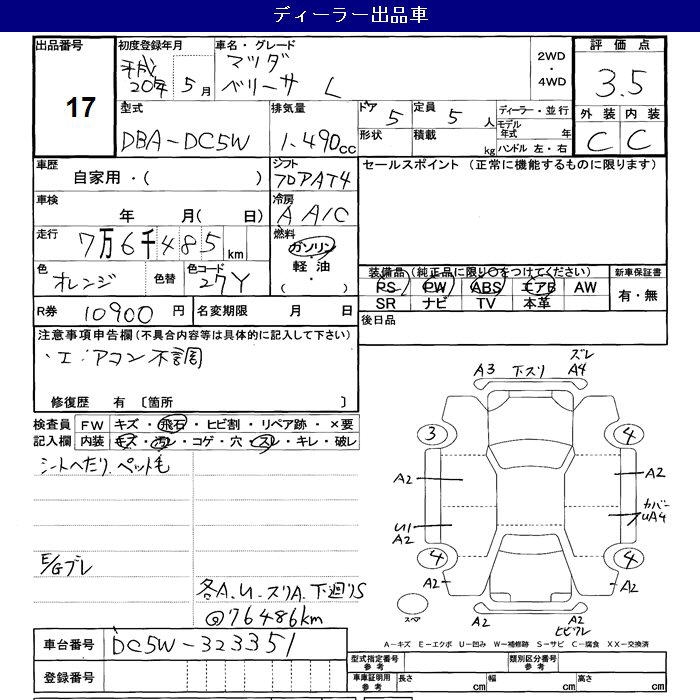 ディーラー出品車
出品番号 初度登録年月 車名・グレード 評価点
17
平成20年 5月
マツダ
ベリーサ L
2WD
・
4WD
3.5
外装 内装
C C
型式 排気量 ドア 定員 ディーラー・並行
DBA-DC5W 1.490cc
5 5人
モデル年式 年
形状 積載 kg ハンドル 左・右
車歴 シフト セールスポイント (正常に機能するものに限ります)
自家用・( )
フロアAT4
車検 冷房
年 月( 日)
A A/C
走行 燃料
7万6千485km
ガソリン
・軽油
・( )
色 色替 色コード
オレンジ 27Y
装備品(純正品に限り○をつけてください) 新車保証書
PS PW ABS エアB AW
SR ナビ TV 本革
有・無
R券 10900円 名変期限 月 日
後日品
注意事項申告欄(不具合内容等は具体的に記入して下さい)
・エアコン不調
修復歴 有 〔箇所 〕
検査員 FW キズ・飛石・ヒビ割・リペア跡・×要
記入欄 内装 キズ・汚レ・コゲ・穴・スレ・キレ・破レ
シートへたり、ペット毛
E/Gブレ
各A.U.スリA.下廻りS
@76486km
A3 下スリ ズレ
A4
3 4
A2 A2
U1
A2
カバー
UA4
4 4
A2 A2
スペア
A2 A2
ヒビワレ
A-キズ E-エクボ U-凹み W-補修跡 S-サビ C-腐食 XX-交換済
車台番号 DC5W-323351
登録番号
型式指定番号 参考 類別区分番号 参考
車庫証明用 参考 長さ cm 幅 cm 高さ cm